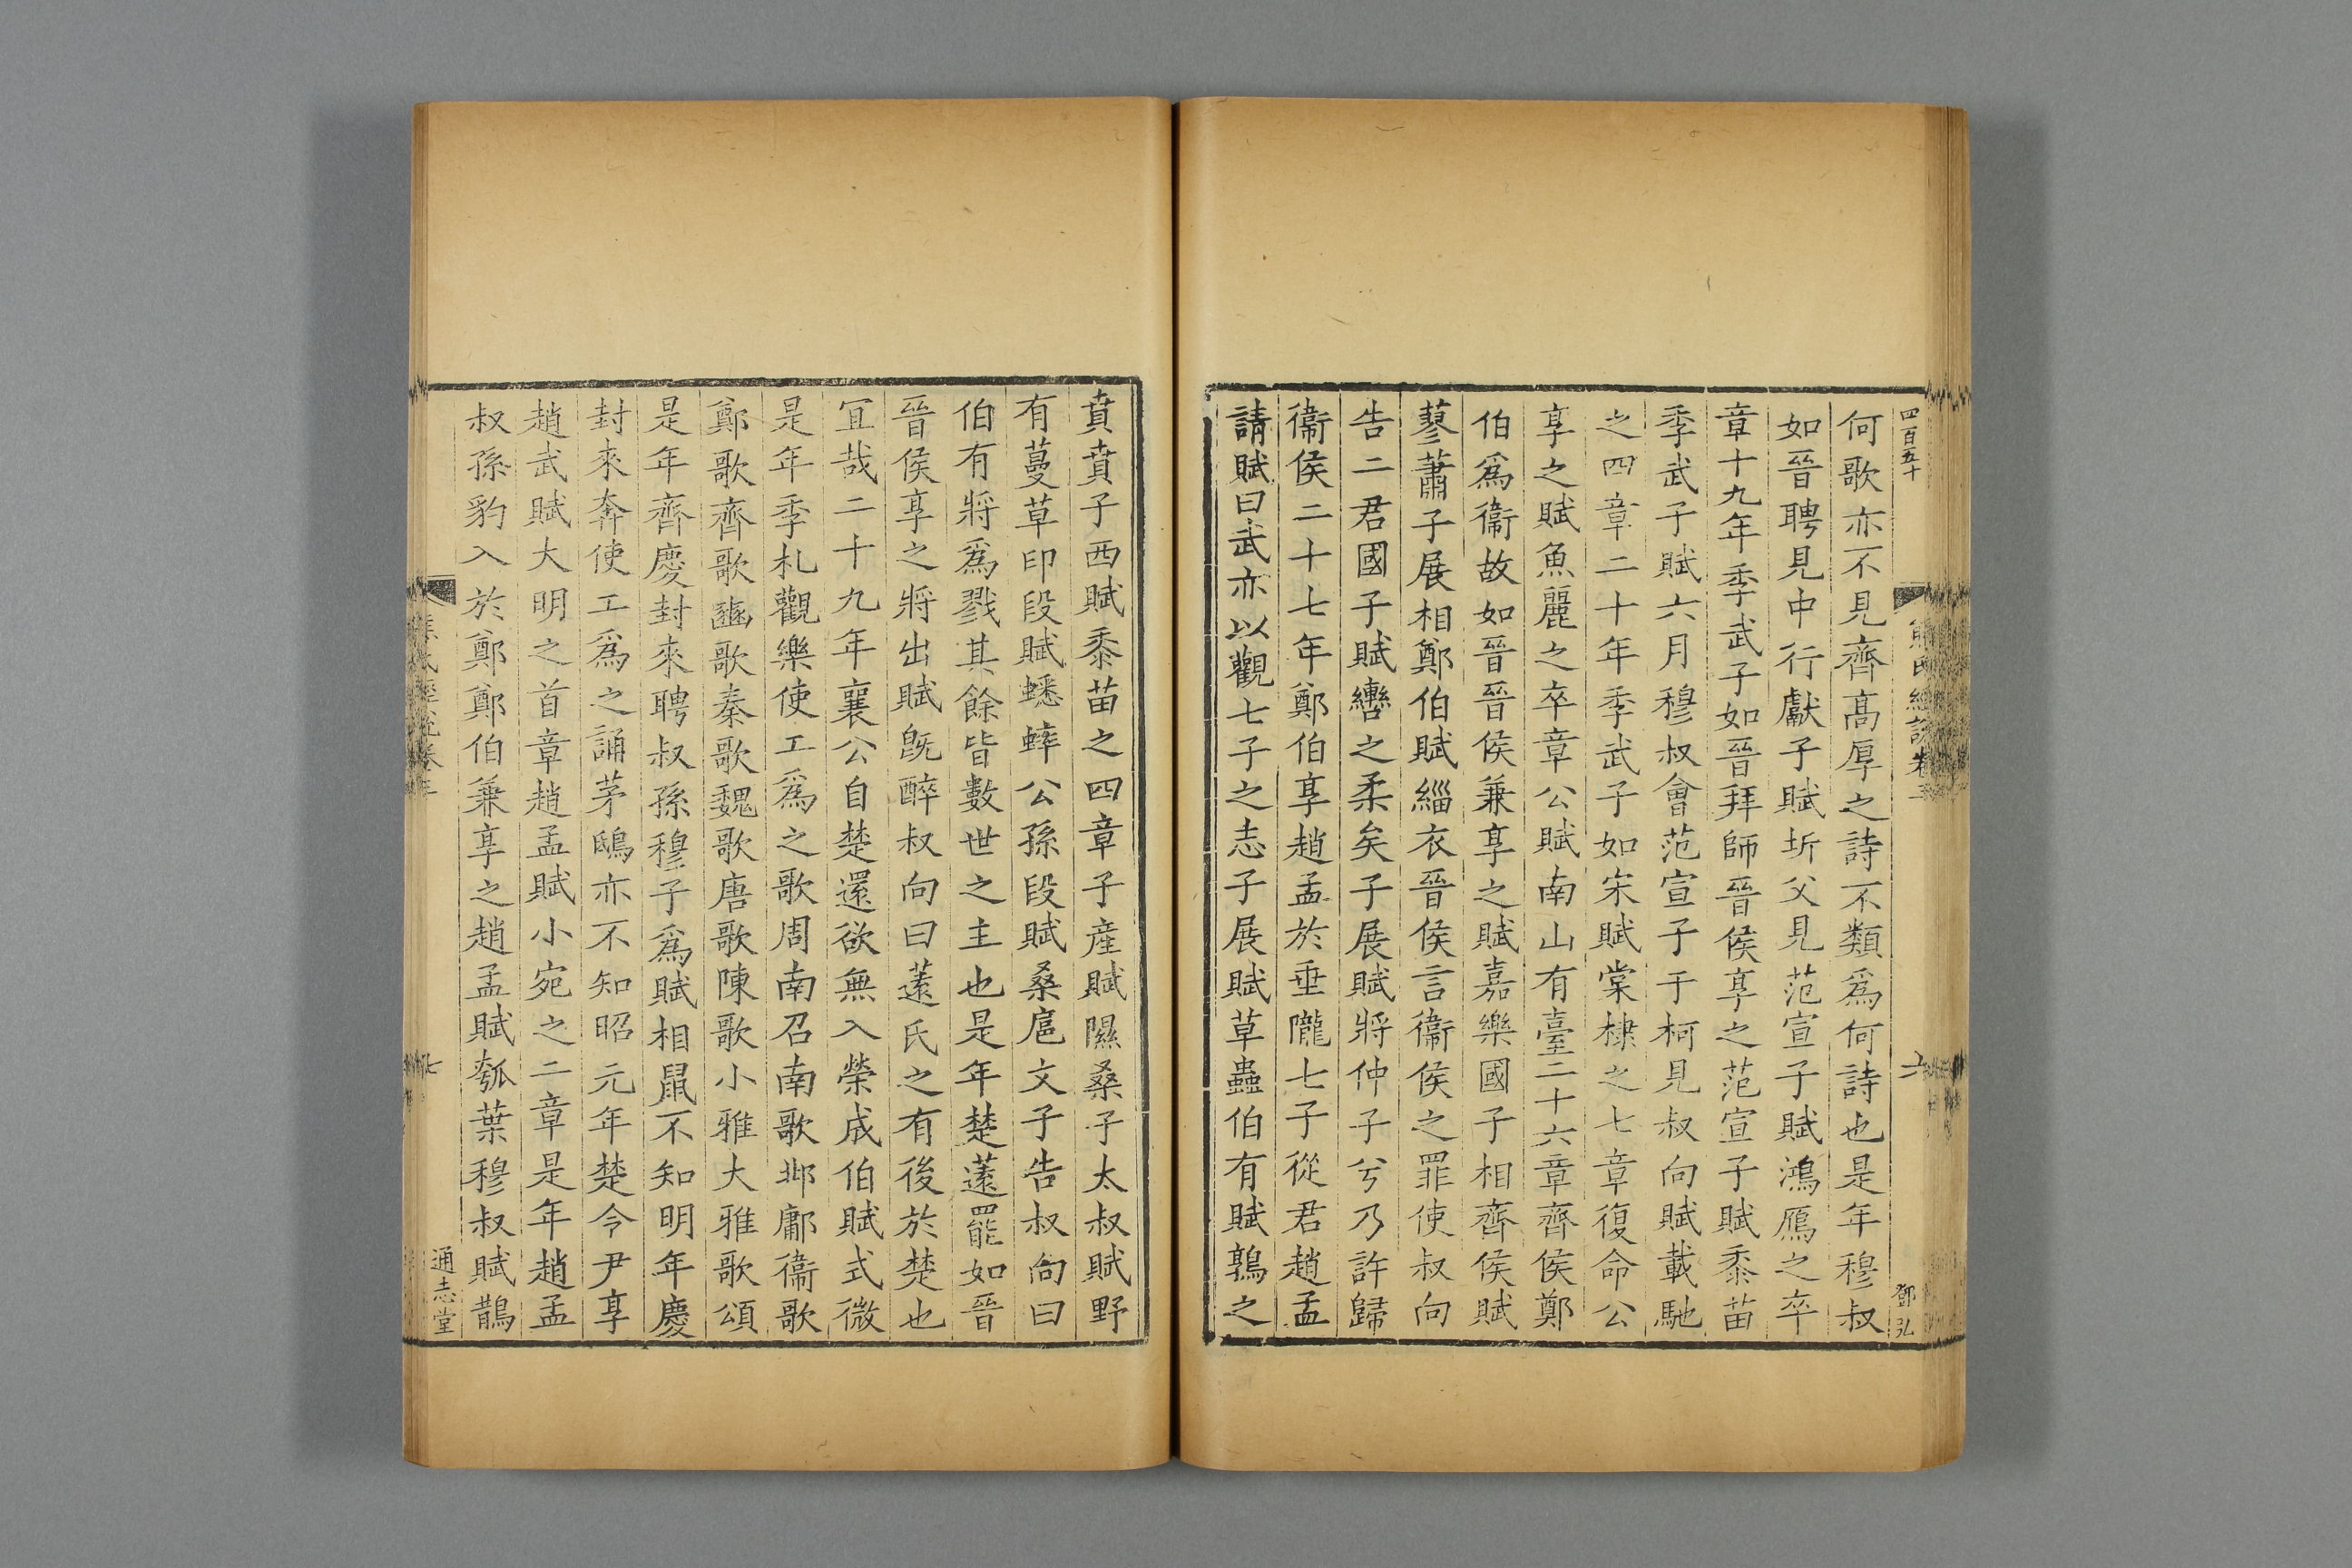 四百五十
熊氏經說卷三
六
鄧弘
何歌亦不見齊高厚之詩不類爲何詩也是年穆叔
如晉聘見中行獻子賦圻父見范宣子賦鴻鴈之卒
章十九年季武子如晉拜師晉侯享之范宣子賦黍苗
季武子賦六月穆叔會范宣子于柯見叔向賦載馳
之四章二十年季武子如宋賦棠棣之七章復命公
享之賦魚麗之卒章公賦南山有臺二十六章齊侯鄭
伯爲衞故如晉晉侯兼享之賦嘉樂國子相齊侯賦
蓼蕭子展相鄭伯賦緇衣晉侯言衞侯之罪使叔向
告二君國子賦轡之柔矣子展賦將仲子兮乃許歸
衞侯二十七年鄭伯享趙孟於垂隴七子從君趙孟
請賦曰武亦以觀七子之志子展賦草蟲伯有賦鶉之
賁賁子西賦黍苗之四章子產賦隰桑子太叔賦野
有蔓草印段賦蟋蟀公孫段賦桑扈文子告叔向曰
伯有將爲戮其餘皆數世之主也是年楚薳罷如晉
晉侯享之將出賦旣醉叔向曰薳氏之有後於楚也
宜哉二十九年襄公自楚還欲無入榮成伯賦式微
是年季札觀樂使工爲之歌周南召南歌邶鄘衞歌
鄭歌齊歌豳歌秦歌魏歌唐歌陳歌小雅大雅歌頌
是年齊慶封來聘叔孫穆子爲賦相鼠不知明年慶
封來奔使工爲之誦茅鴟亦不知昭元年楚令尹享
趙武賦大明之首章趙孟賦小宛之二章是年趙孟
叔孫豹入於鄭鄭伯兼享之趙孟賦瓠葉穆叔賦鵲
七
通志堂